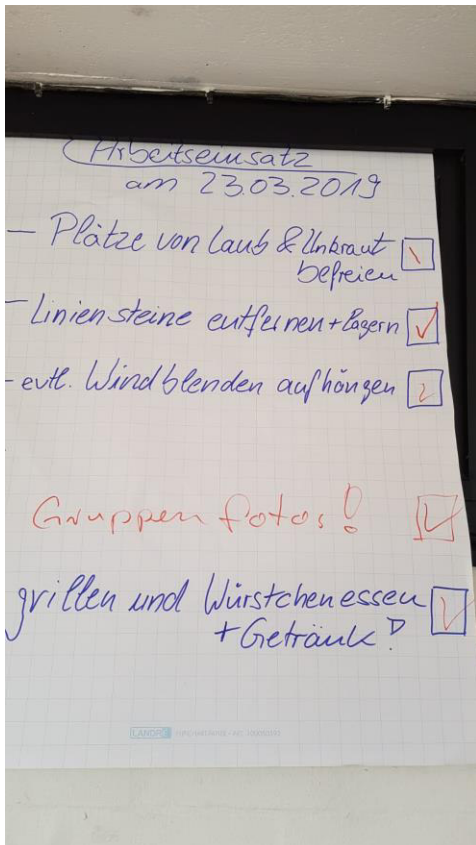 Arbeitseinsatz
am 23.03.2019
- Plätze von Laub & Unkraut
befreien
- Liniensteine entfernen + lagern
- evtl. Windblenden aufhängen
Gruppenfotos!
grillen und Würstchen essen
+ Getränk!
LANDRÉ